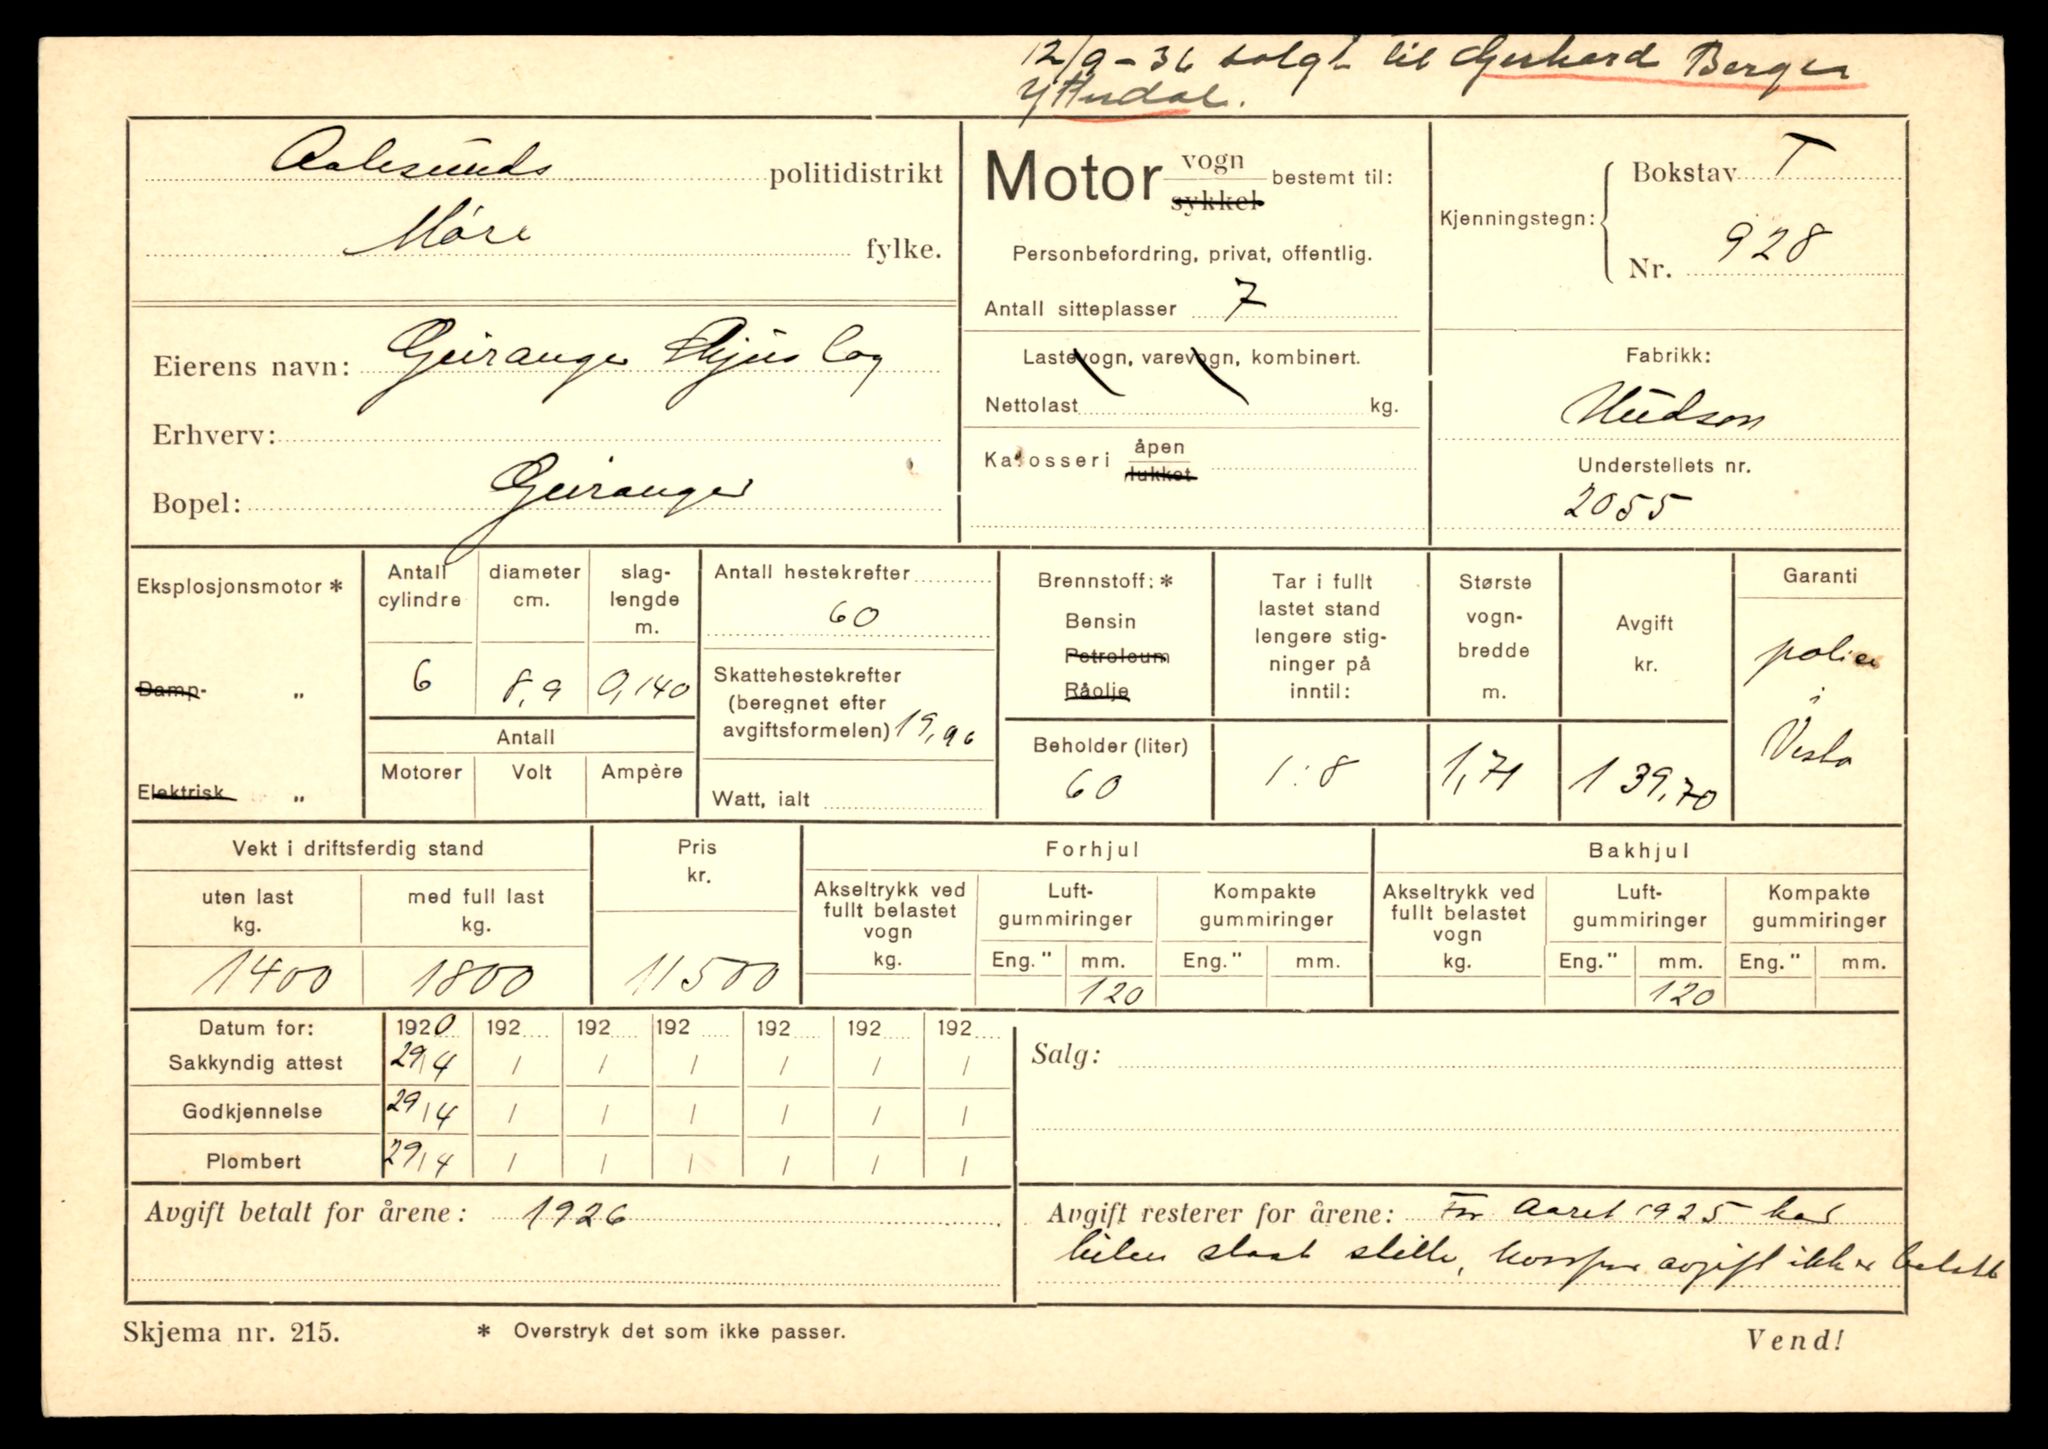 12/9-36 solgt til Gerhard Berge
Ytterdal.
Aalesunds politidistrikt
Møre fylke.
Eierens navn: Geiranger Skjuslag
Erhverv:
Bopel: Geiranger
Motor vogn sykkel bestemt til:
Personbefordring, privat, offentlig.
Antall sitteplasser 7
Lastevogn, varevogn, kombinert.
Nettolast kg.
Karosseri åpen lukket
Kjenningstegn: Bokstav T
Nr. 928
Fabrikk:
Hudson
Understellets nr.
2055
Eksplosjonsmotor *
Damp- "
Elektrisk "
Antall cylindre
6
diameter cm.
8,9
slag-
lengde
m.
0,140
Antall
Motorer Volt Ampère
Antall hestekrefter
60
Skattehestekrefter
(beregnet efter
avgiftsformelen) 19,96
Watt, ialt
Brennstoff: *
Bensin
Petroleum
Råolje
Beholder (liter)
60
Tar i fullt
lastet stand
lengere stig-
ninger på
inntil:
1:8
Største
vogn-
bredde
m.
1,71
Avgift
kr.
139,70
Garanti
police
i
Vesta
Vekt i driftsferdig stand
uten last
kg.
1400
med full last
kg.
1800
Pris
kr.
11500
Forhjul
Akseltrykk ved
fullt belastet
vogn
kg.
Luft-
gummiringer
Eng." mm.
120
Kompakte
gummiringer
Eng." mm.
Bakhjul
Akseltrykk ved
fullt belastet
vogn
kg.
Luft-
gummiringer
Eng." mm.
120
Kompakte
gummiringer
Eng." mm.
Datum for: 1920 192 192 192 192 192 192
Sakkyndig attest 29/4 / / / / / /
Godkjennelse 29/4 / / / / / /
Plombert 29/4 / / / / / /
Salg:
Avgift betalt for årene: 1926
Avgift resterer for årene: For Aaret 1925 har
bilen staat stille, hvorfor avgift ikke betalt
Skjema nr. 215.
* Overstryk det som ikke passer.
Vend!